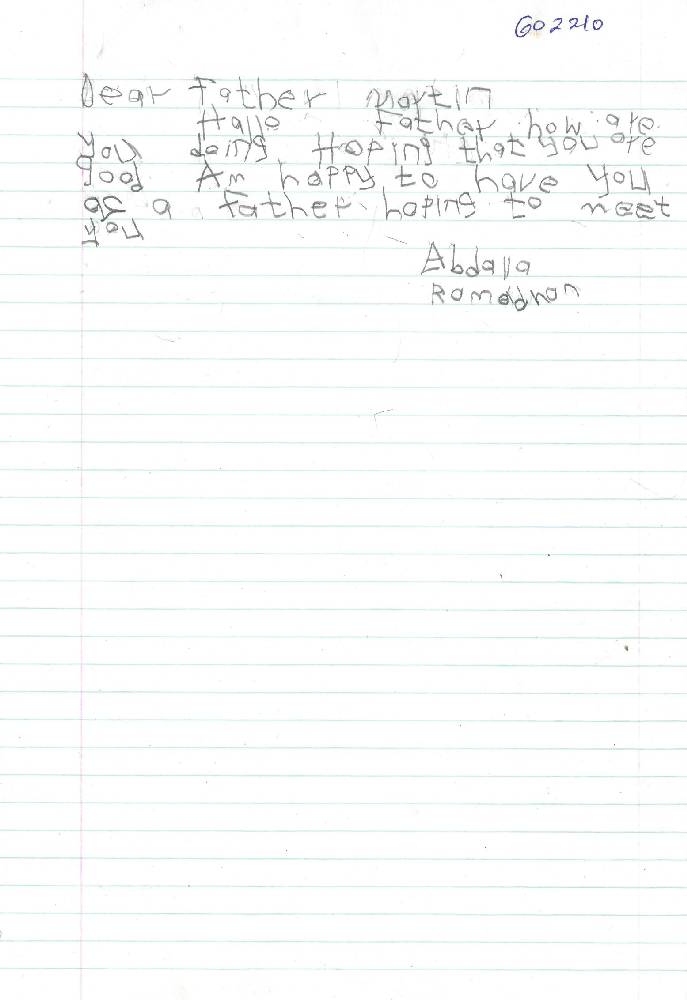 G02210
Dear Father Martin
Hallo Father how are
you doing Hoping that you are
good Am happy to have you
as a father hoping to meet
you
Abdalla
Ramadhan